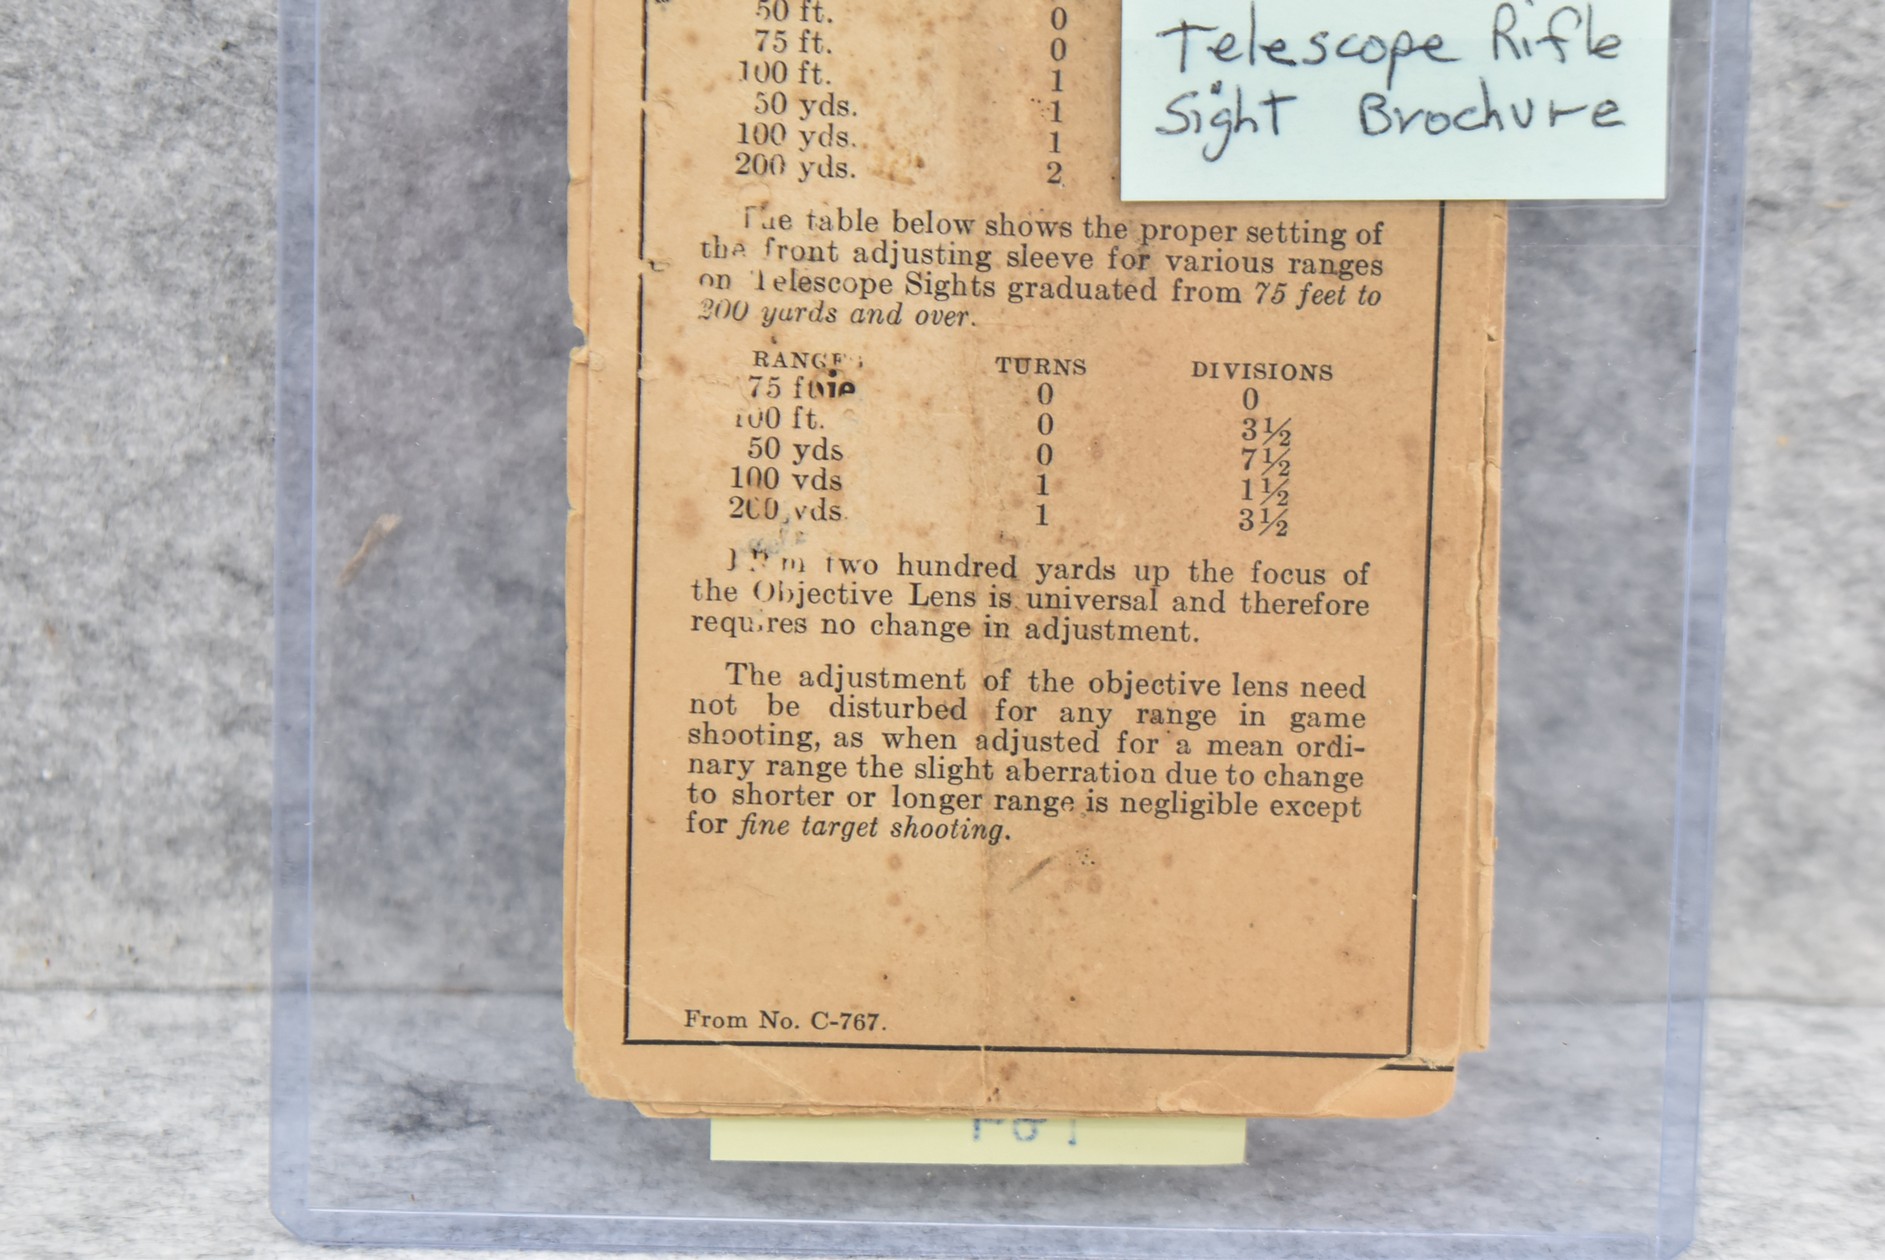 50 ft. 0
75 ft. 0
100 ft. 1
50 yds. 1
100 yds. 1
200 yds. 2
Telescope Rifle
Sight Brochure
The table below shows the proper setting of
the front adjusting sleeve for various ranges
on Telescope Sights graduated from 75 feet to
200 yards and over.
RANGES TURNS DIVISIONS
75 0 0
100 ft. 0 3½
50 yds 0 7½
100 yds 1 1½
200 yds. 1 3½
two hundred yards up the focus of
the Objective Lens is universal and therefore
requires no change in adjustment.
The adjustment of the objective lens need
not be disturbed for any range in game
shooting, as when adjusted for a mean ordi-
nary range the slight aberration due to change
to shorter or longer range is negligible except
for fine target shooting.
From No. C-767.